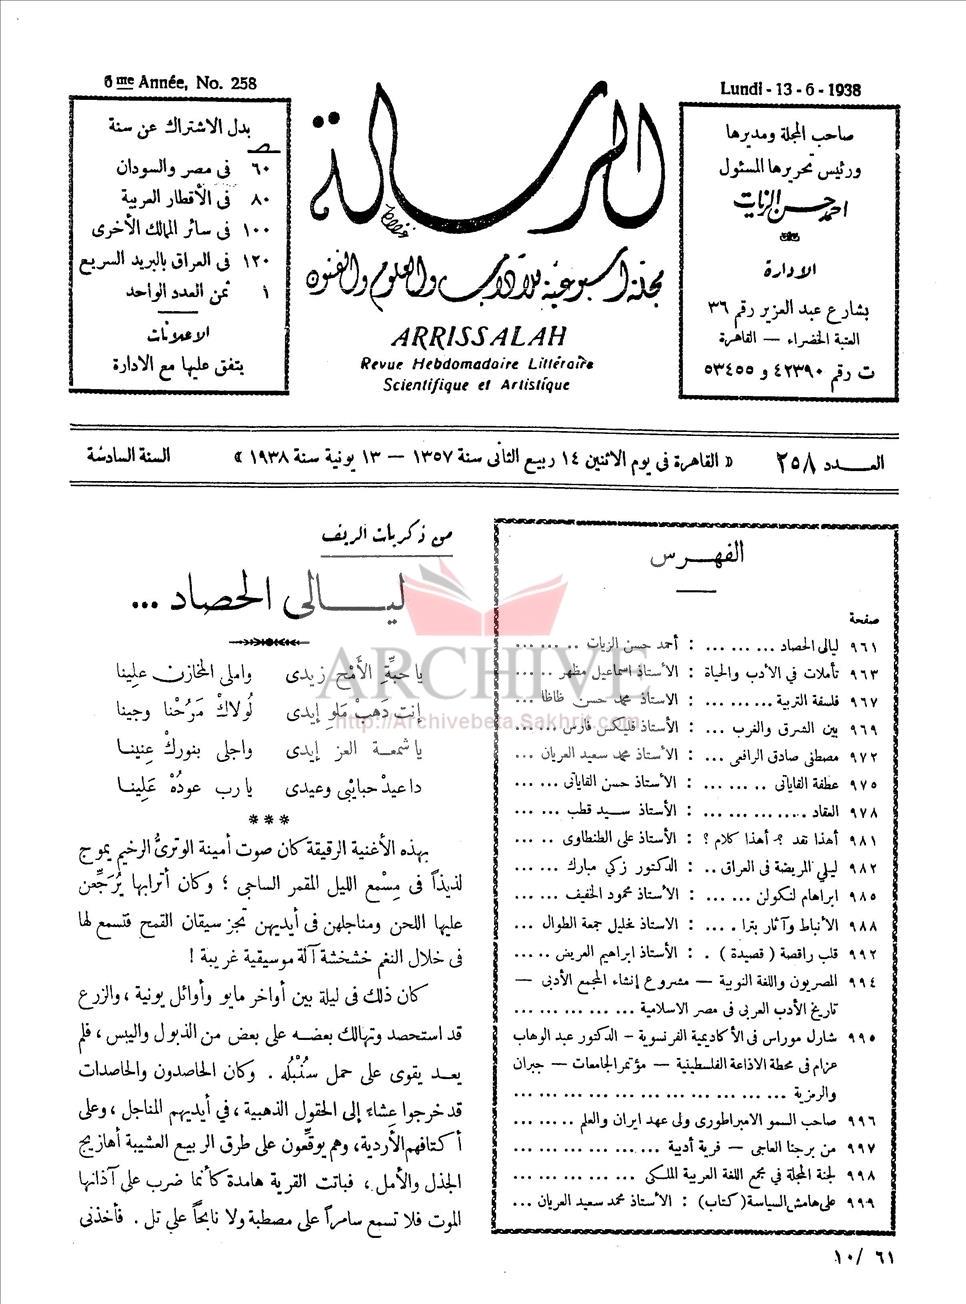 6me Année, No. 258
Lundi - 13 - 6 - 1938
صاحب المجلة ومديرها
ورئيس تحريرها المسئول
احمد حسن الزيات
الادارة
بشارع عبد العزيز رقم ٣٦
العتبة الخضراء — القاهرة
ت رقم ٤٢٣٩٠ و ٥٣٤٥٥
الرسالة
مجلة أسبوعية للآداب والعلوم والفنون
ARRISSALAH
Revue Hebdomadaire Littéraire
Scientifique et Artistique
بدل الاشتراك عن سنة
٦٠ فى مصر والسودان
٨٠ فى الأقطار العربية
١٠٠ فى سائر الممالك الأخرى
١٢٠ فى العراق بالبريد السريع
١ ثمن العدد الواحد
الاعلانات
يتفق عليها مع الادارة
العـــدد ٢٥٨
« القاهرة فى يوم الاثنين ١٤ ربيع الثانى سنة ١٣٥٧ — ١٣ يونية سنة ١٩٣٨ »
السنة السادسة
الفهـــرس
صفحة
٩٦١ ليالى الحصاد ... ... ... : أحمد حسن الزيات .. ... ...
٩٦٣ تأملات في الأدب والحياة : الأستاذ اسماعيل مظهر .. ...
٩٦٧ فلسفة التربية ... ... ... : الأستاذ محمد حسن ظاظا ...
٩٦٩ بين الشرق والغرب ... ... : الأستاذ فليكس فارس ... ...
٩٧٢ مصطفى صادق الرافعى ... : الأستاذ محمد سعيد العريان ...
٩٧٥ عطفة القاياتى .. ... ... : الأستاذ حسن القاياتى ... ...
٩٧٨ العقاد ... ... ... ... ... : الأستاذ ســيد قطب ... ...
٩٨١ أهذا نقد ؟ـ أهذا كلام ؟ : الأستاذ على الطنطاوى .. ...
٩٨٢ ليلي المريضة فى العراق .. : الدكتور زكي مبارك ... ...
٩٨٥ ابراهام لنكولن ... ... ... : الأستاذ محمود الخفيف ... ...
٩٨٨ الأنباط وآثار بترا . ... ... : الاستاذ خليل جمعة الطوال ...
٩٩٢ قلب راقصة ( قصيدة ) . : الأستاذ ابراهيم العريض .. ...
٩٩٤ المصريون واللغة النوبية — مشروع إنشاء المجمع الأدبى —
تاريخ الأدب العربى فى مصر الاسلامية ... ... ... ... ...
٩٩٥ شارل موراس فى الأكاديمية الفرنسوية – الدكتور عبد الوهاب
عزام فى محطة الاذاعة الفلسطينية — مؤتمر الجامعات — جبران
والرمزية ... ... ... ... ... ... ... ... ...
٩٩٦ صاحب السمو الامبراطورى ولى عهد ايران والعلم .. ... ...
٩٩٧ من برجنا العاجى — فرية أدبية ... ... ... ... ... ...
٩٩٨ لجنة المجلة في مجمع اللغة العربية الملكي ... ... ... ... ...
٩٩٩ على هامش السياسة (كتاب) : الأستاذ محمد سعيد العريان ...
من ذكريات الريف
ليـــالى الحصاد ...
يا حبّةِ الأَمْح زيدى واملى المخازن علينا
إنت دَهَبْ مَلو إيدى لُولاكْ مَرُحْنا وجينا
يا شمعـة العز إيدى واجلى بنورك عنينـا
دا عيد حبايْبى وعيدى يا رب عودُهْ عَلِينـا
***
بهذه الأغنية الرقيقة كان صوت أمينة الوترىُّ الرخيم يموج
لذيذاً فى مِسْمع الليل المقمر الساجى ؛ وكان أترابها يُرَجِّعن
عليها اللحن ومناجلهن فى أيديهن تجز سيقان القمح فتسمع لها
فى خلال النغم خشخشة آلة موسيقية غريبة !
كان ذلك فى ليلة بين أواخر مايو وأوائل يونية ، والزرع
قد استحصد وتهالك بعضـه على بعض من الذبول واليبس ، فلم
يعـد يقوى على حمل سنُبْلُه . وكان الحاصدون والحاصدات
قد خرجوا عشاء إلى الحقول الذهبية ، فى أيديهم المناجل ، وعلى
أكتافهم الأردية ، وهم يوقّعون على طرق الربيع العشيبة أهازيج
الجذل والأمل ، فباتت القرية هامدة كأنما ضرب على آذانها
الموت فلا تسمع سامراً على مصطبة ولا نابحاً على تل . فأخذنى
٦١ /١٠
ARCHIVE
http://Archivebeta.Sakhrit.com